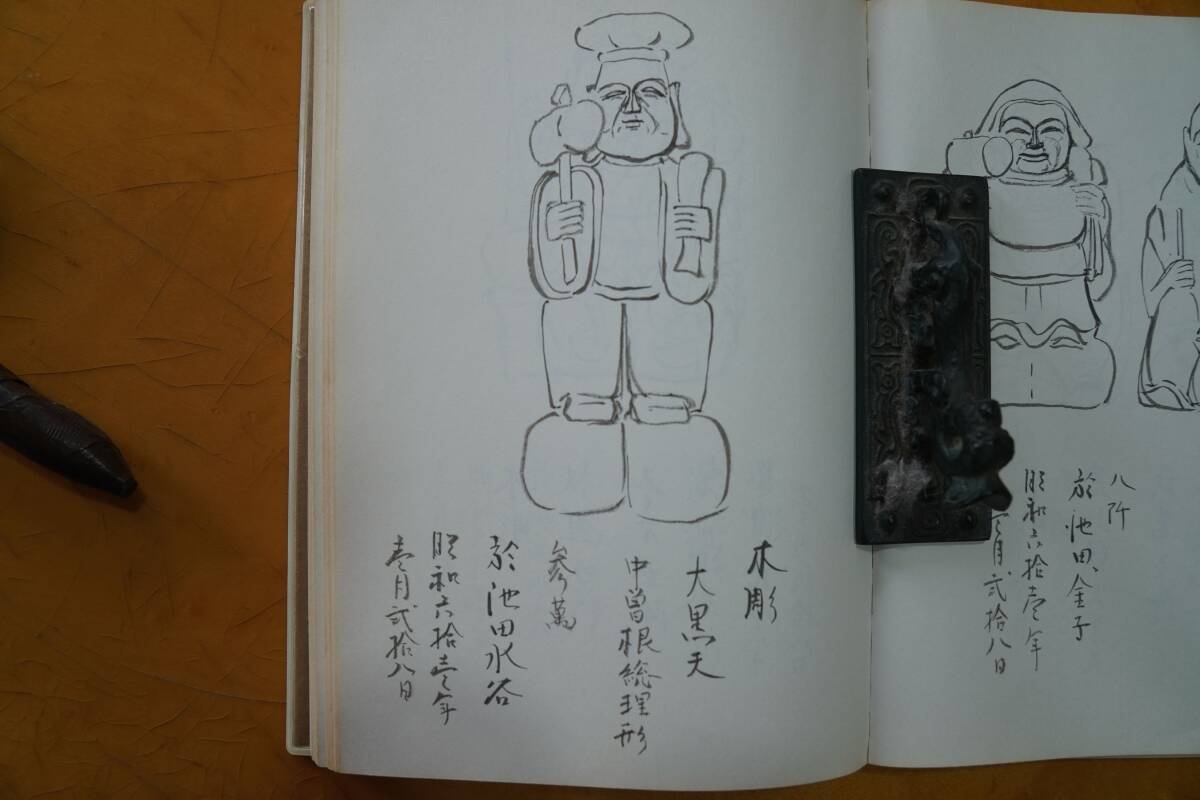 八所
於池田、金子
昭和六拾壱年
壱月弐拾八日
木彫
大黒天
中曽根総理形
参萬
於池田水谷
昭和六拾壱年
壱月弐拾八日